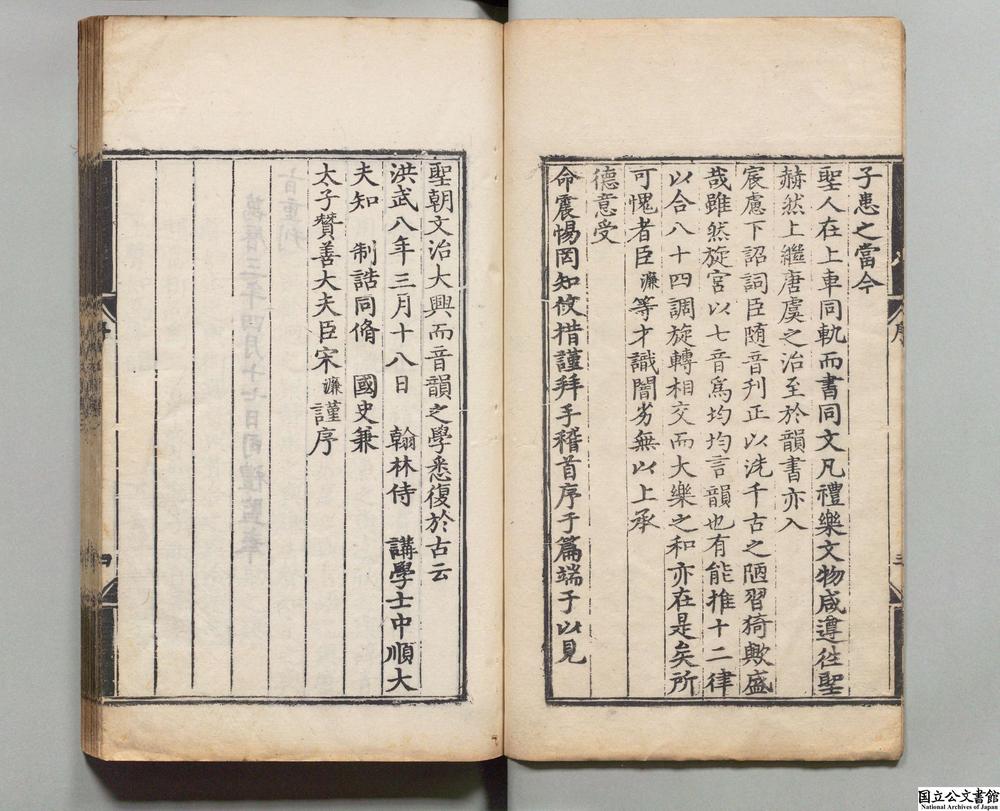 子患之當今
聖人在上車同軌而書同文凡禮樂文物咸遵徃聖
赫然上繼唐虞之治至於韻書亦入
宸慮下詔詞臣随音刋正以洗千古之陋習猗歟盛
哉雖然旋宮以七音爲均均言韻也有能推十二律
以合八十四調旋轉相交而大樂之和亦在是矣所
可愧者臣濂等才識闇劣無以上承
德意受
命震惕罔知攸措謹拜手稽首序于篇端于以見
聖朝文治大興而音韻之學悉復於古云
洪武八年三月十八日 翰林侍 講學士中順大
夫知 制誥同脩 國史兼
太子贊善大夫臣宋濂謹序
序
三
四
国立公文書館
National Archives of Japan